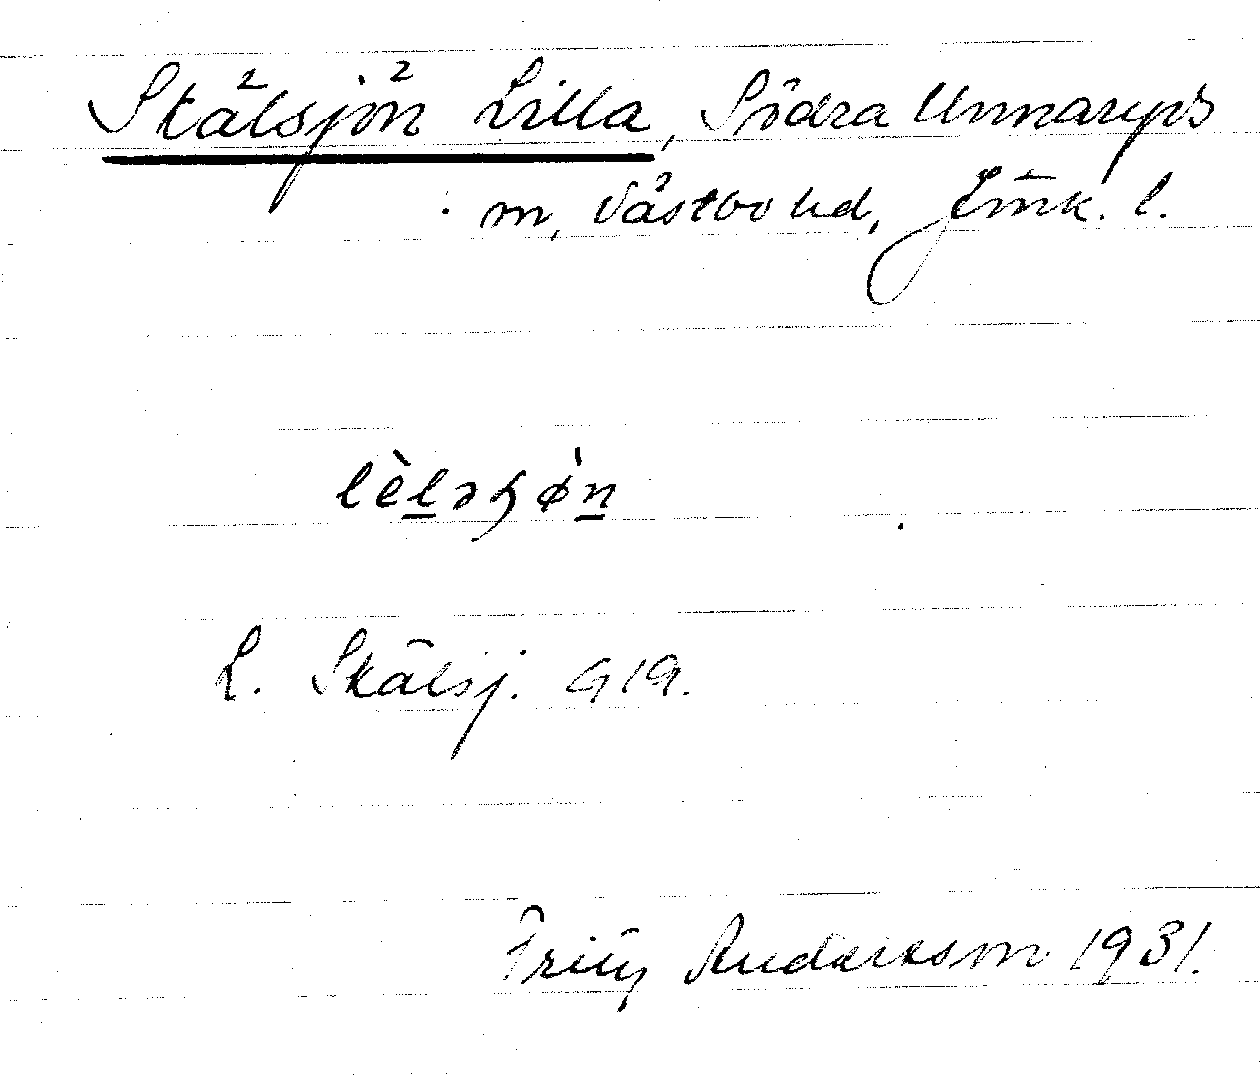 Skälsjön Lilla, Södra Unnaryds
m, Västbo hd, Jönk. l.
lèləɧø̀n
L. Skälsj. G19.
Fritz Andersson 1931.